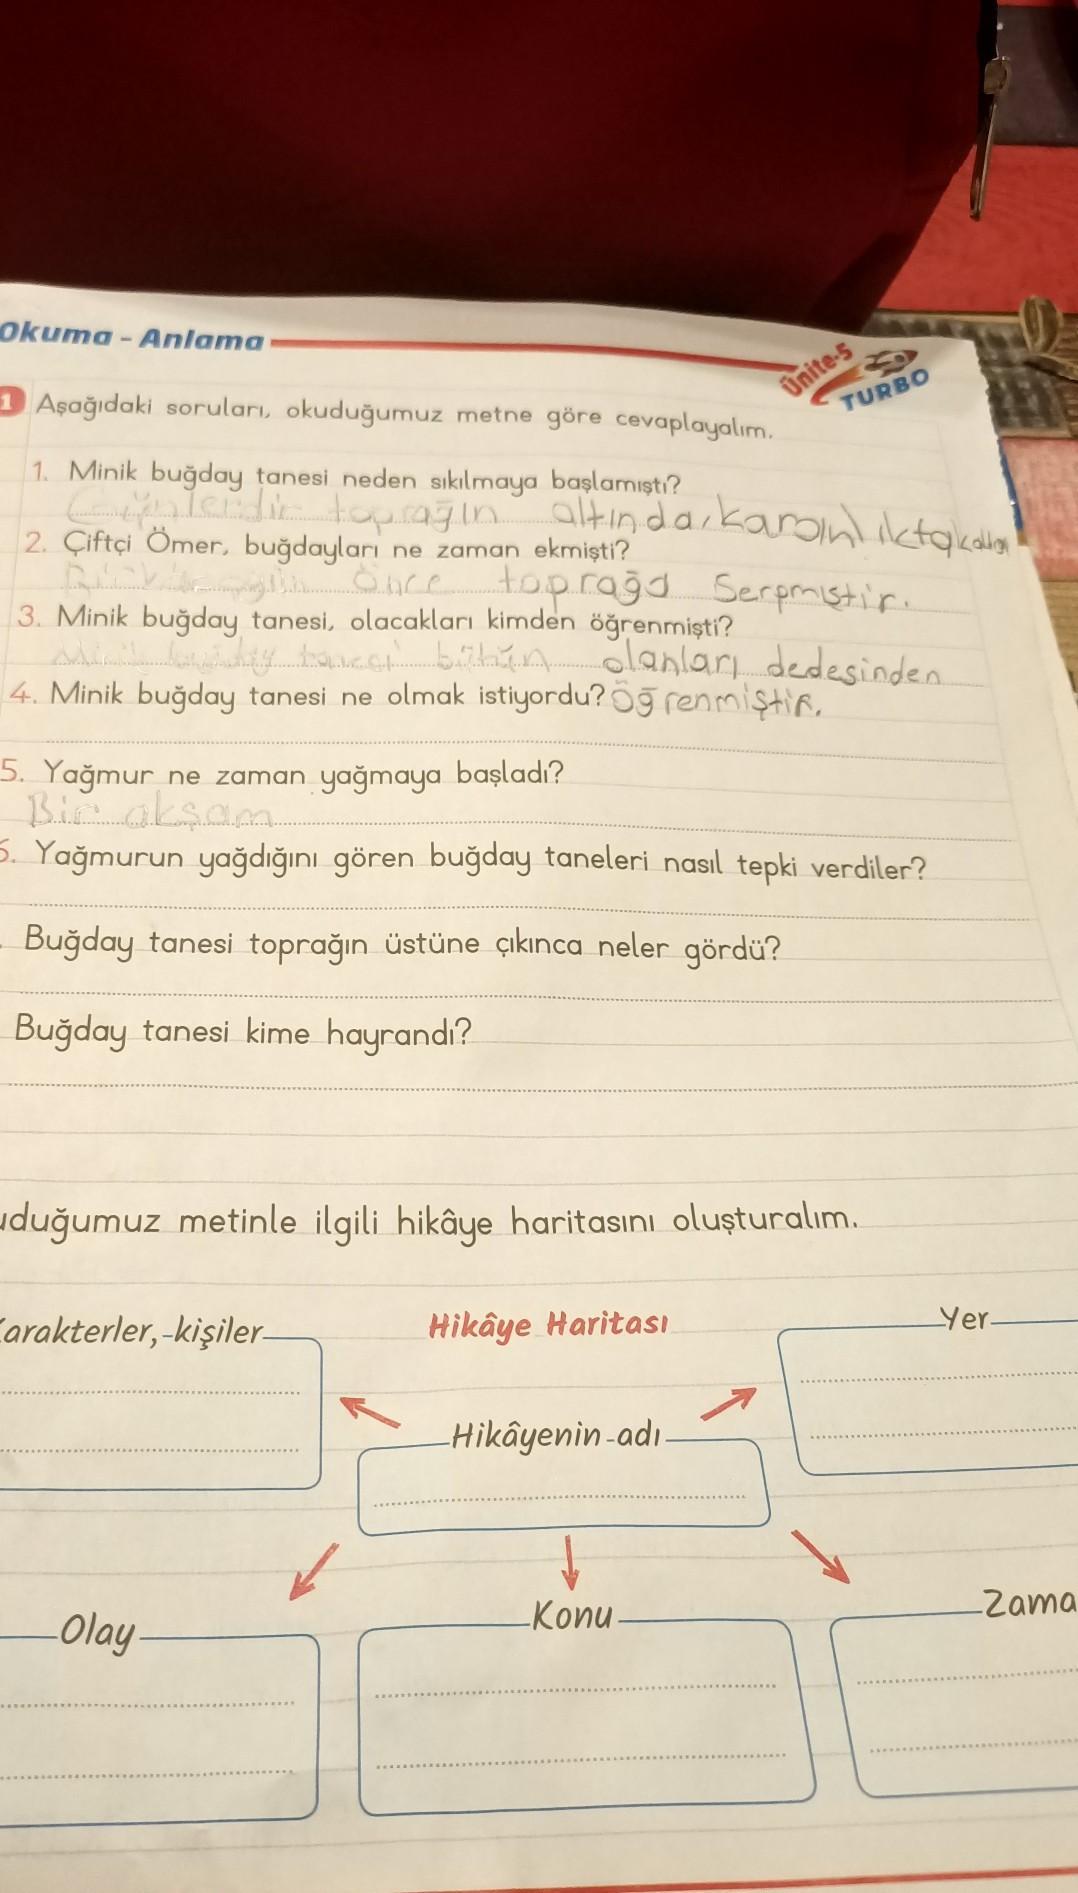 Okuma - Anlama
Ünite-5
TURBO
1 Aşağıdaki soruları, okuduğumuz metne göre cevaplayalım.
1. Minik buğday tanesi neden sıkılmaya başlamıştı?
Günlerdir toprağın altında, karanlıkta
2. Çiftçi Ömer, buğdayları ne zaman ekmişti?
önce toprağa Serpmiştir.
3. Minik buğday tanesi, olacakları kimden öğrenmişti?
Minik buğday tanesi bütün olanları dedesinden
4. Minik buğday tanesi ne olmak istiyordu? Öğrenmiştir.
5. Yağmur ne zaman yağmaya başladı?
Bir akşam
6. Yağmurun yağdığını gören buğday taneleri nasıl tepki verdiler?
Buğday tanesi toprağın üstüne çıkınca neler gördü?
Buğday tanesi kime hayrandı?
uduğumuz metinle ilgili hikâye haritasını oluşturalım.
Karakterler, kişiler
Hikâye Haritası
Yer
Hikâyenin adı
Olay
Konu
Zama